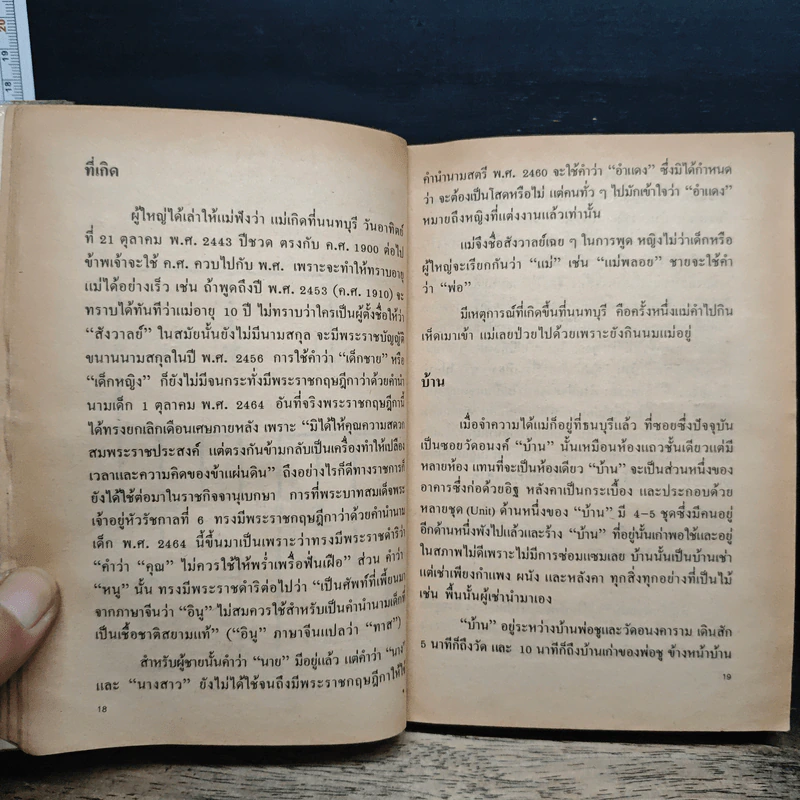 20
19
18
ที่เกิด
ผู้ใหญ่ได้เล่าให้แม่ฟังว่า แม่เกิดที่นนทบุรี วันอาทิตย์
ที่ 21 ตุลาคม พ.ศ. 2443 ปีชวด ตรงกับ ค.ศ. 1900 ต่อไป
ข้าพเจ้าจะใช้ ค.ศ. ควบไปกับ พ.ศ. เพราะจะทำให้ทราบอายุ
แม่ได้อย่างเร็ว เช่น ถ้าพูดถึงปี พ.ศ. 2453 (ค.ศ. 1910) จะ
ทราบได้ทันทีว่าแม่อายุ 10 ปี ไม่ทราบว่าใครเป็นผู้ตั้งชื่อให้ว่า
“สังวาลย์” ในสมัยนั้นยังไม่มีนามสกุล จะมีพระราชบัญญัติ
ขนานนามสกุลในปี พ.ศ. 2456 การใช้คำว่า “เด็กชาย” หรือ
“เด็กหญิง” ก็ยังไม่มีจนกระทั่งมีพระราชกฤษฎีกาว่าด้วยคำนำ
นามเด็ก 1 ตุลาคม พ.ศ. 2464 อันที่จริงพระราชกฤษฎีกานี้
ได้ทรงยกเลิกเดือนเศษภายหลัง เพราะ “มิได้ให้คุณความสดวก
สมพระราชประสงค์ แต่ตรงกันข้ามกลับเป็นเครื่องทำให้เปลือง
เวลาและความคิดของข้าแผ่นดิน” ถึงอย่างไรก็ดีทางราชการก็
ยังได้ใช้ต่อมาในราชกิจจานุเบกษา การที่พระบาทสมเด็จพระ
เจ้าอยู่หัวรัชกาลที่ 6 ทรงมีพระราชกฤษฎีกาว่าด้วยคำนำนาม
เด็ก พ.ศ. 2464 นี้ขึ้นมาเป็นเพราะว่าทรงมีพระราชดำริว่า
“คำว่า “คุณ” ไม่ควรใช้ให้พร่ำเพรื่อฟั่นเฝือ” ส่วน คำว่า
“หนู” นั้น ทรงมีพระราชดำริต่อไปว่า “เป็นศัพท์ที่เพี้ยนมา
จากภาษาจีนว่า “อินู” ไม่สมควรใช้สำหรับเป็นคำนำนามเด็กที่
เป็นเชื้อชาติสยามแท้” (“อินู” ภาษาจีนแปลว่า “ทาส”)
สำหรับผู้ชายนั้นคำว่า “นาย” มีอยู่แล้ว แต่คำว่า “นาง”
และ “นางสาว” ยังไม่ได้ใช้จนถึงมีพระราชกฤษฎีกาให้ใช้
18
คำนำนามสตรี พ.ศ. 2460 จะใช้คำว่า “อำแดง” ซึ่งมิได้กำหนด
ว่า จะต้องเป็นโสดหรือไม่ แต่คนทั่ว ๆ ไปมักเข้าใจว่า “อำแดง”
หมายถึงหญิงที่แต่งงานแล้วเท่านั้น
แม่จึงชื่อสังวาลย์เฉย ๆ ในการพูด หญิงไม่ว่าเด็กหรือ
ผู้ใหญ่จะเรียกกันว่า “แม่” เช่น “แม่พลอย” ชายจะใช้คำ
ว่า “พ่อ”
มีเหตุการณ์ที่เกิดขึ้นที่นนทบุรี คือครั้งหนึ่งแม่คำไปกิน
เห็ดเมาเข้า แม่เลยป่วยไปด้วยเพราะยังกินนมแม่อยู่
บ้าน
เมื่อจำความได้แม่ก็อยู่ที่ธนบุรีแล้ว ที่ซอยซึ่งปัจจุบัน
เป็นซอยวัดอนงค์ “บ้าน” นั้นเหมือนห้องแถวชั้นเดียวแต่มี
หลายห้อง แทนที่จะเป็นห้องเดียว “บ้าน” จะเป็นส่วนหนึ่งของ
อาคารซึ่งก่อด้วยอิฐ หลังคาเป็นกระเบื้อง และประกอบด้วย
หลายชุด (Unit) ด้านหนึ่งของ “บ้าน” มี 4-5 ชุดซึ่งมีคนอยู่
อีกด้านหนึ่งพังไปแล้วและร้าง “บ้าน” ที่อยู่นั้นเก่าพอใช้และอยู่
ในสภาพไม่ดีเพราะไม่มีการซ่อมแซมเลย บ้านนั้นเป็นบ้านเช่า
แต่เช่าเพียงกำแพง ผนัง และหลังคา ทุกสิ่งทุกอย่างที่เป็นไม้
เช่น พื้นนั้นผู้เช่านำมาเอง
“บ้าน” อยู่ระหว่างบ้านพ่อชูและวัดอนงคาราม เดินสัก
5 นาทีก็ถึงวัด และ 10 นาทีก็ถึงบ้านเก่าของพ่อชู ข้างหน้าบ้าน
19